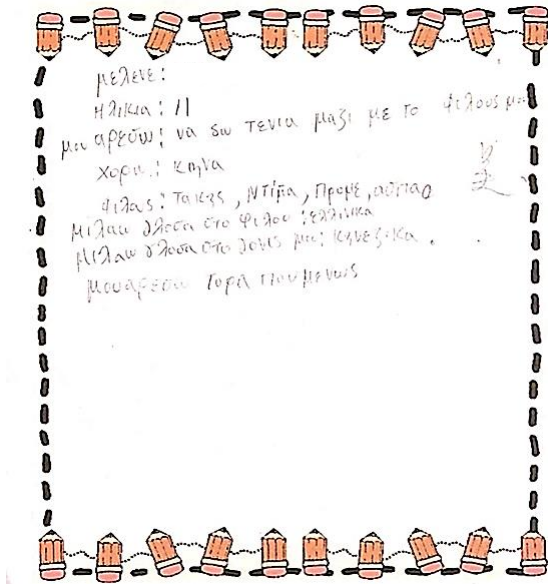 μελενε:
ηλικια: 11
μου αρεσω: να δω τενια μαζι με το φιλους μου
χορα: κηνα
φιλος: Τακης, Ντίπα, Προμε,
Μιλαω γλοσα στο φιλου: ελλινικα
Μιλαω γλοσα στο γονις μου: κηνεζικα.
μουαρεσω τορα που μενως